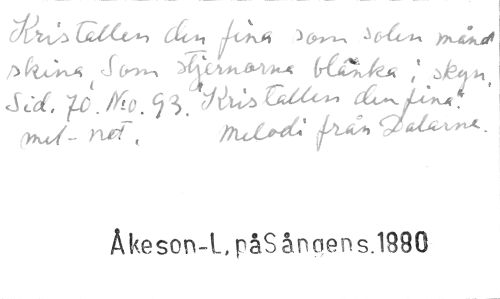 Kristallen den fina som solen månd
skina, Som stjernorna blänka i skyn.
Sid. 70. No. 93. "Kristallen den fina".
mel-not. Melodi från Dalarne.
Åkeson-L, påSångens.1880